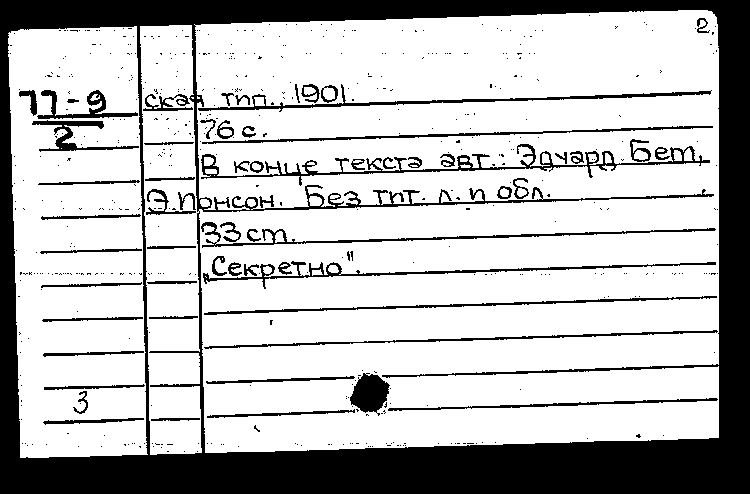 2.
77-9
2
ская тип., 1901.
76 с.
В конце текста авт.: Эдуард Бет,
Э. Понсон. Без тит. л. и обл.
33 ст.
„Секретно".
3